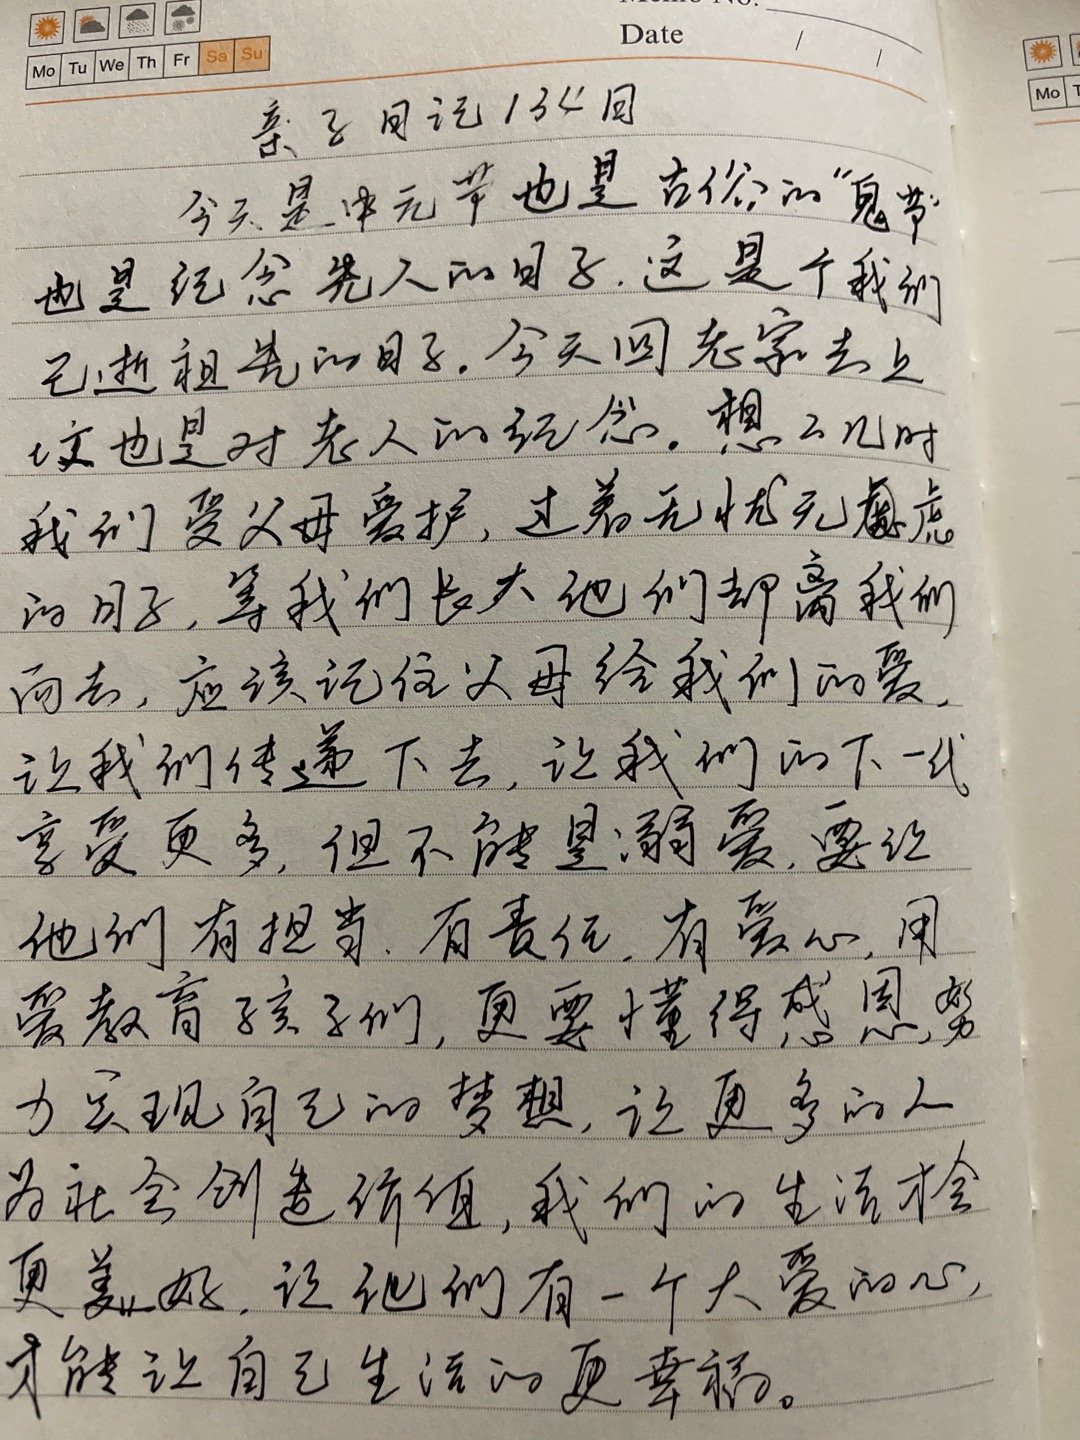 Memo No.
Date / /
Mo Tu We Th Fr Sa Su
Mo
亲子日记134回
今天是中元节也是古俗的“鬼节”
也是纪念先人的日子.这是个我们
已逝祖先的日子.今天回老家去上
坟也是对老人的纪念.想想儿时
我们受父母爱护,过着无忧无虑
的日子,等我们长大他们却离我们
而去,应该记住父母给我们的爱,
让我们传递下去,让我们的下一代
享受更多,但不能是溺爱,要让
他们有担当、有责任,有爱心,用
爱教育孩子们,更要懂得感恩,努
力实现自己的梦想,让更多的人
为社会创造价值,我们的生活才会
更美好,让他们有一个大爱的心,
才能让自己生活的更幸福。